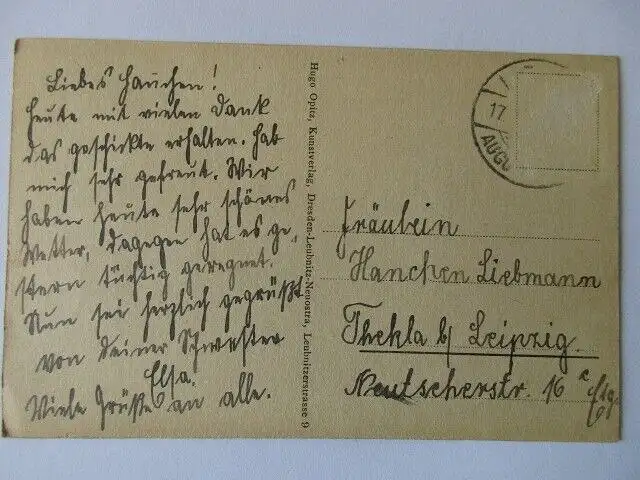 Liebes Hannchen!
Heute mit vielen Dank
das geschickte erhalten. Hab
mich sehr gefreut. Wir
haben heute sehr schönes
Wetter, dagegen hat es ge-
stern tüchtig geregnet.
Nun sei herzlich gegrüßt
von Deiner Schwester
Elsa.
Viele Grüße an alle.
Hugo Opitz, Kunstverlag, Dresden-Leubnitz-Neuostra, Leubnitzerstrasse 9
17
AUGU
Fräulein
Hanchen Liebmann
Thekla b/ Leipzig.
Neutscherstr. 16